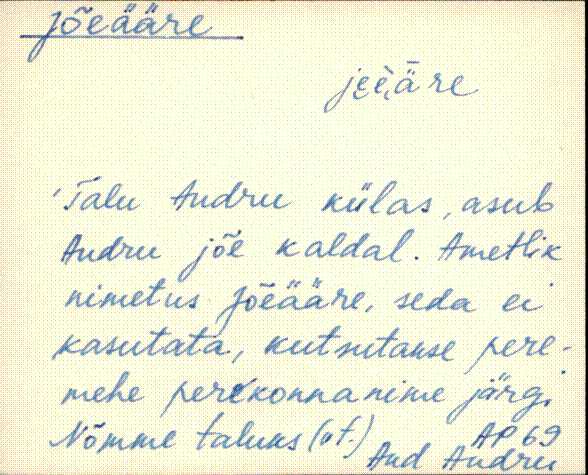 Jõeääre
jɛɛ̀,äre
'Talu Andru külas, asub
Andru jõe kaldal. Ametlik
nimetus Jõeääre, seda ei
kasutata, kutsutakse pere-
mehe perekonnanime järgi
Nõmme taluks (vt.)
AP 69
And Andru